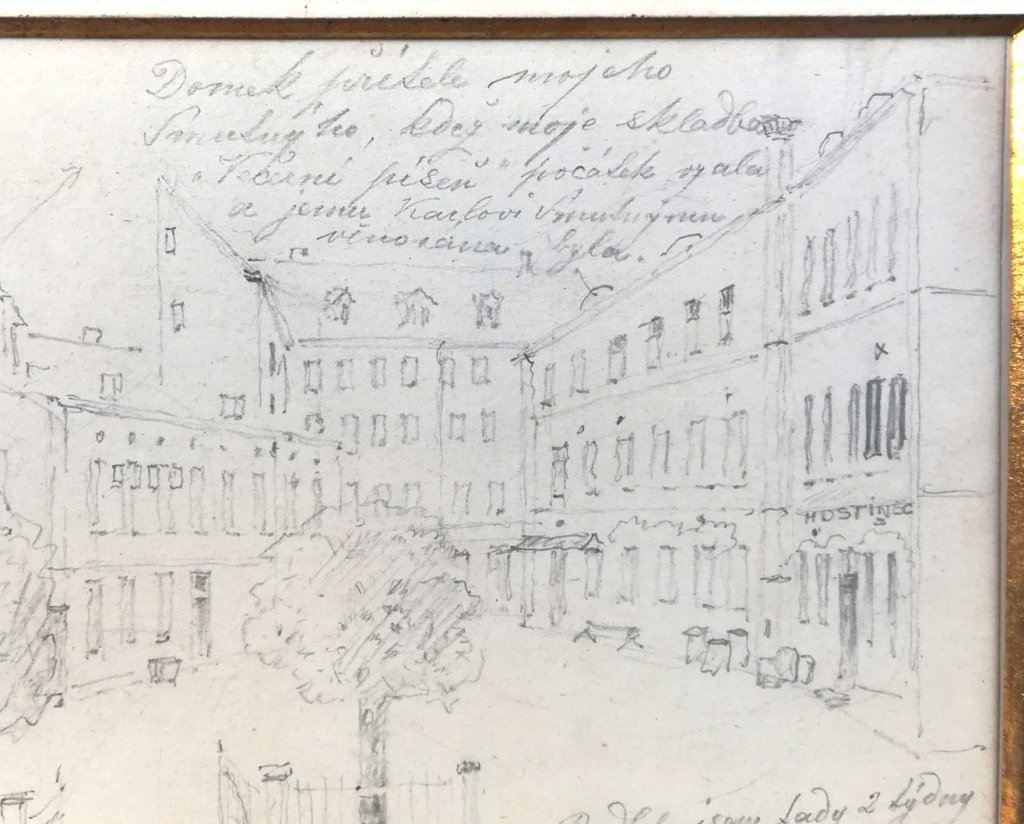 Domek přítele mojeho
Smutnýho, když moje skladba
"Večerní píseň" počátek vzala
a jemu Karlovi Smutnýmu
věnována byla.
HOSTINEC
jsem tady 2 týdny